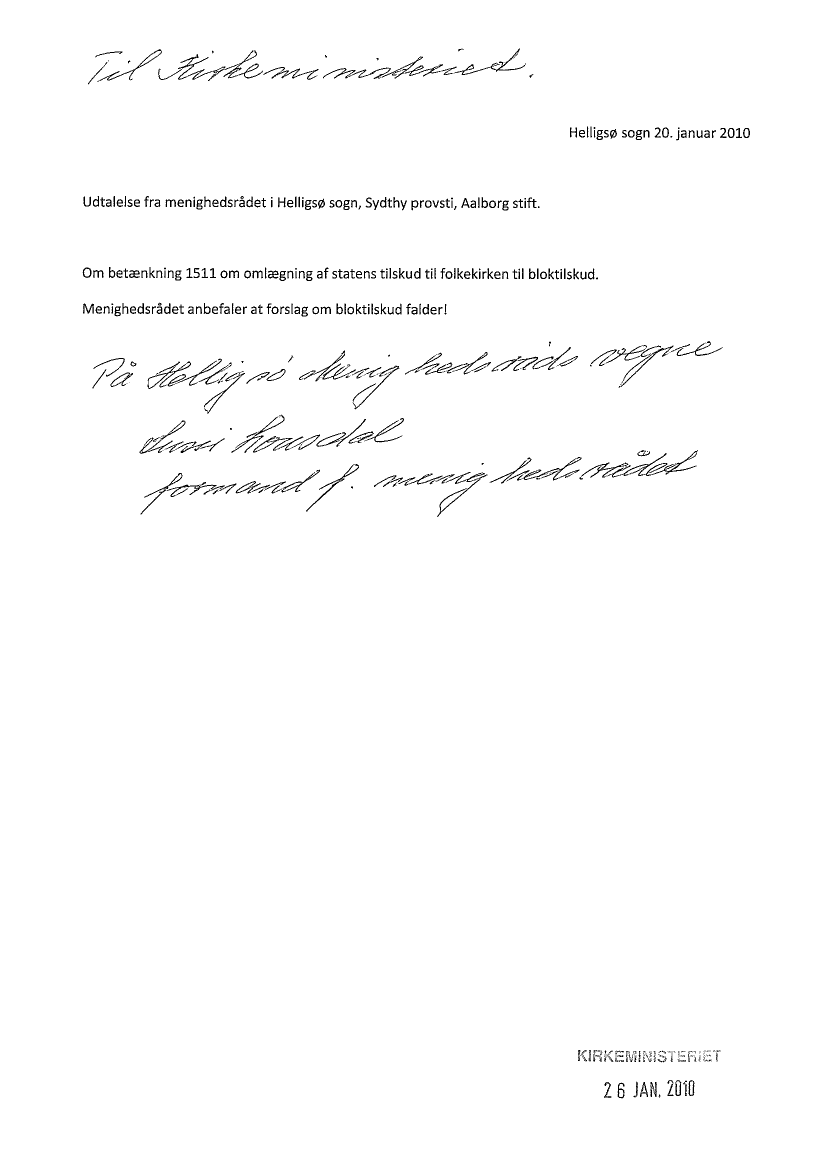 Til Kirkeministeried.
Helligsø sogn 20. januar 2010
Udtalelse fra menighedsrådet i Helligsø sogn, Sydthy provsti, Aalborg stift.
Om betænkning 1511 om omlægning af statens tilskud til folkekirken til bloktilskud.
Menighedsrådet anbefaler at forslag om bloktilskud falder!
På Helligsø Menighedsråds vegne
formand f. menighedsrådet
KIRKEMINISTERIET
26 JAN. 2010